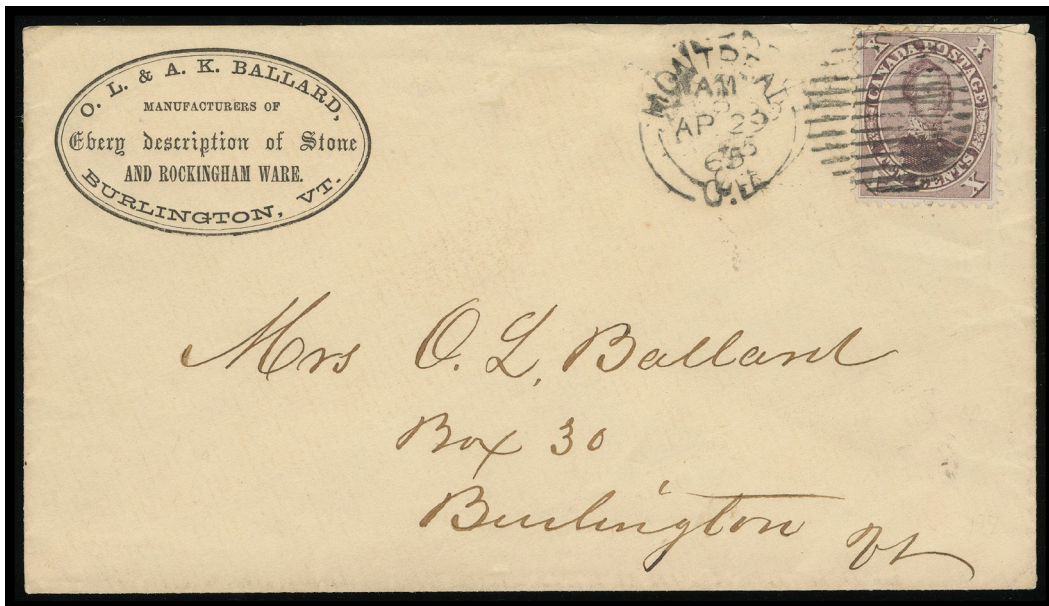 O. L. & A. K. BALLARD,
MANUFACTURERS OF
Every description of Stone
AND ROCKINGHAM WARE.
BURLINGTON, VT.
MONTREAL
AM
AP 23
65
C.E.
CANADA POSTAGE
CENTS
X
X
X
Mrs O. L. Ballard
Box 30
Burlington Vt